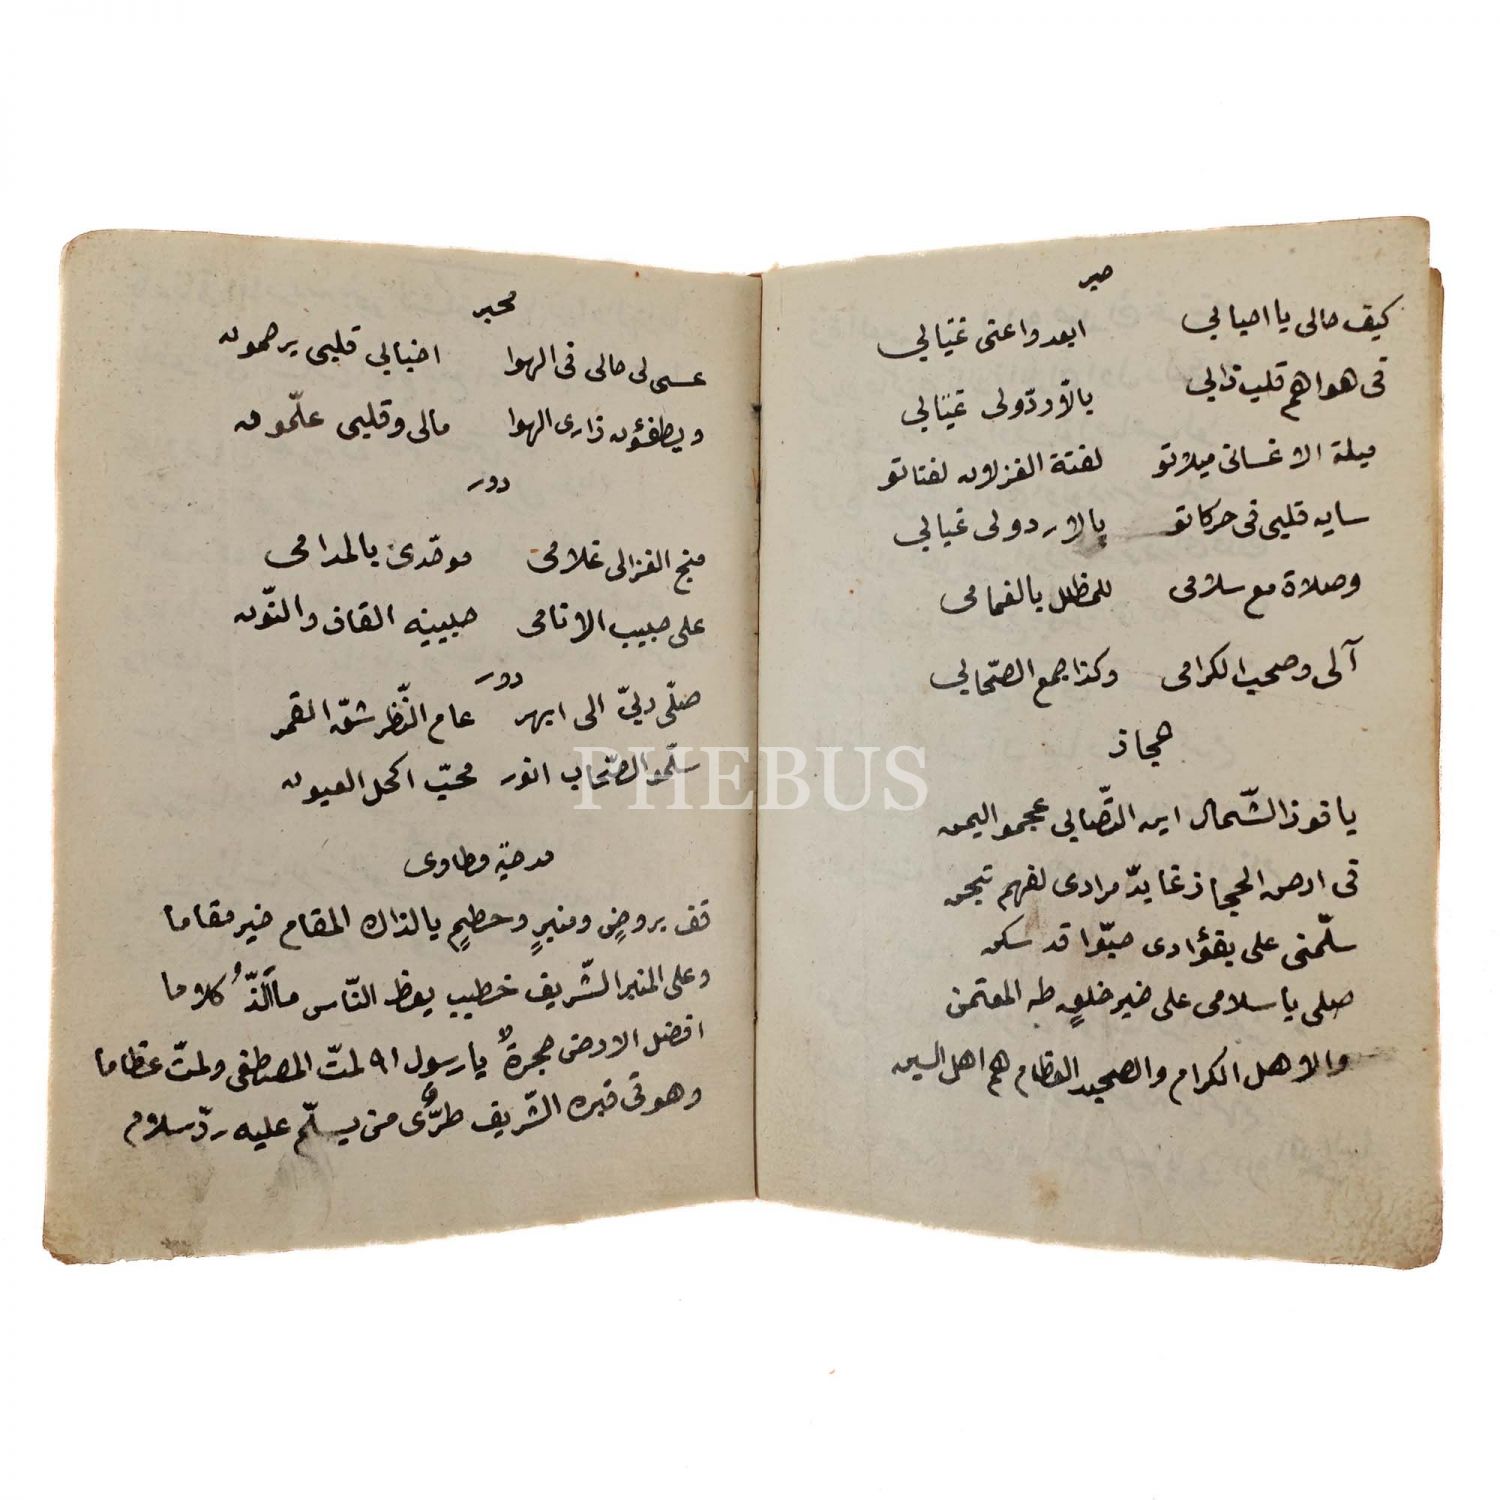 كيف حالى يا احبابي ابعدوا عنى غيابي
فى هواهم قلب ذابي يالا ردّولى غيابي
ميلة الاغسانى ميلاتو لفتة الغزلان لفتاتو
سايه قلبى فى حركاتو يالا ردولى غيابي
وصلاة مع سلامى للمظلل بالغمامى
آلى وصحب الكرامى وكذا جمع الصّحابي
حجاز
يا فوز الشّمال اين التّصابي عجمو اليمن
فى ارض الحجاز غاية مرادى لفهم تيجن
سلّمنى على بفؤادى حبّوا قد سكن
صلى يا سلامى على خير خلقٍ طه المعتمن
والاهل الكرام والصحب العظام هم اهل السين
محير
عسى لى حالى فى الهوا احبابي قلبى يرحمون
ويطفؤن نارى الهوا مالى وقلبى علّمون
دور
منج الغزالى غلامى موقدى بالمدامى
على حبيب الانامى حبيبه القاف والنّون
دور
صلّى ربيّ الى ابهر عام النّظر شقّ القمر
سلّمو الصّحاب انور محبّ اكحل العيون
مدحيه مطاوى
قف بروضٍ ومنبرٍ وحطيمٍ يالذاك المقام خير مقاما
وعلى المنبر الشّريف خطيب يعظ النّاس ما اَلذّ كلاما
افضل الارض حجرةٌ يا رسول ٩١ لمّت المصطفى ولمّت عظاما
وهو فى قبره الشّريف طرّى من يسلّم عليه ردّ سلام